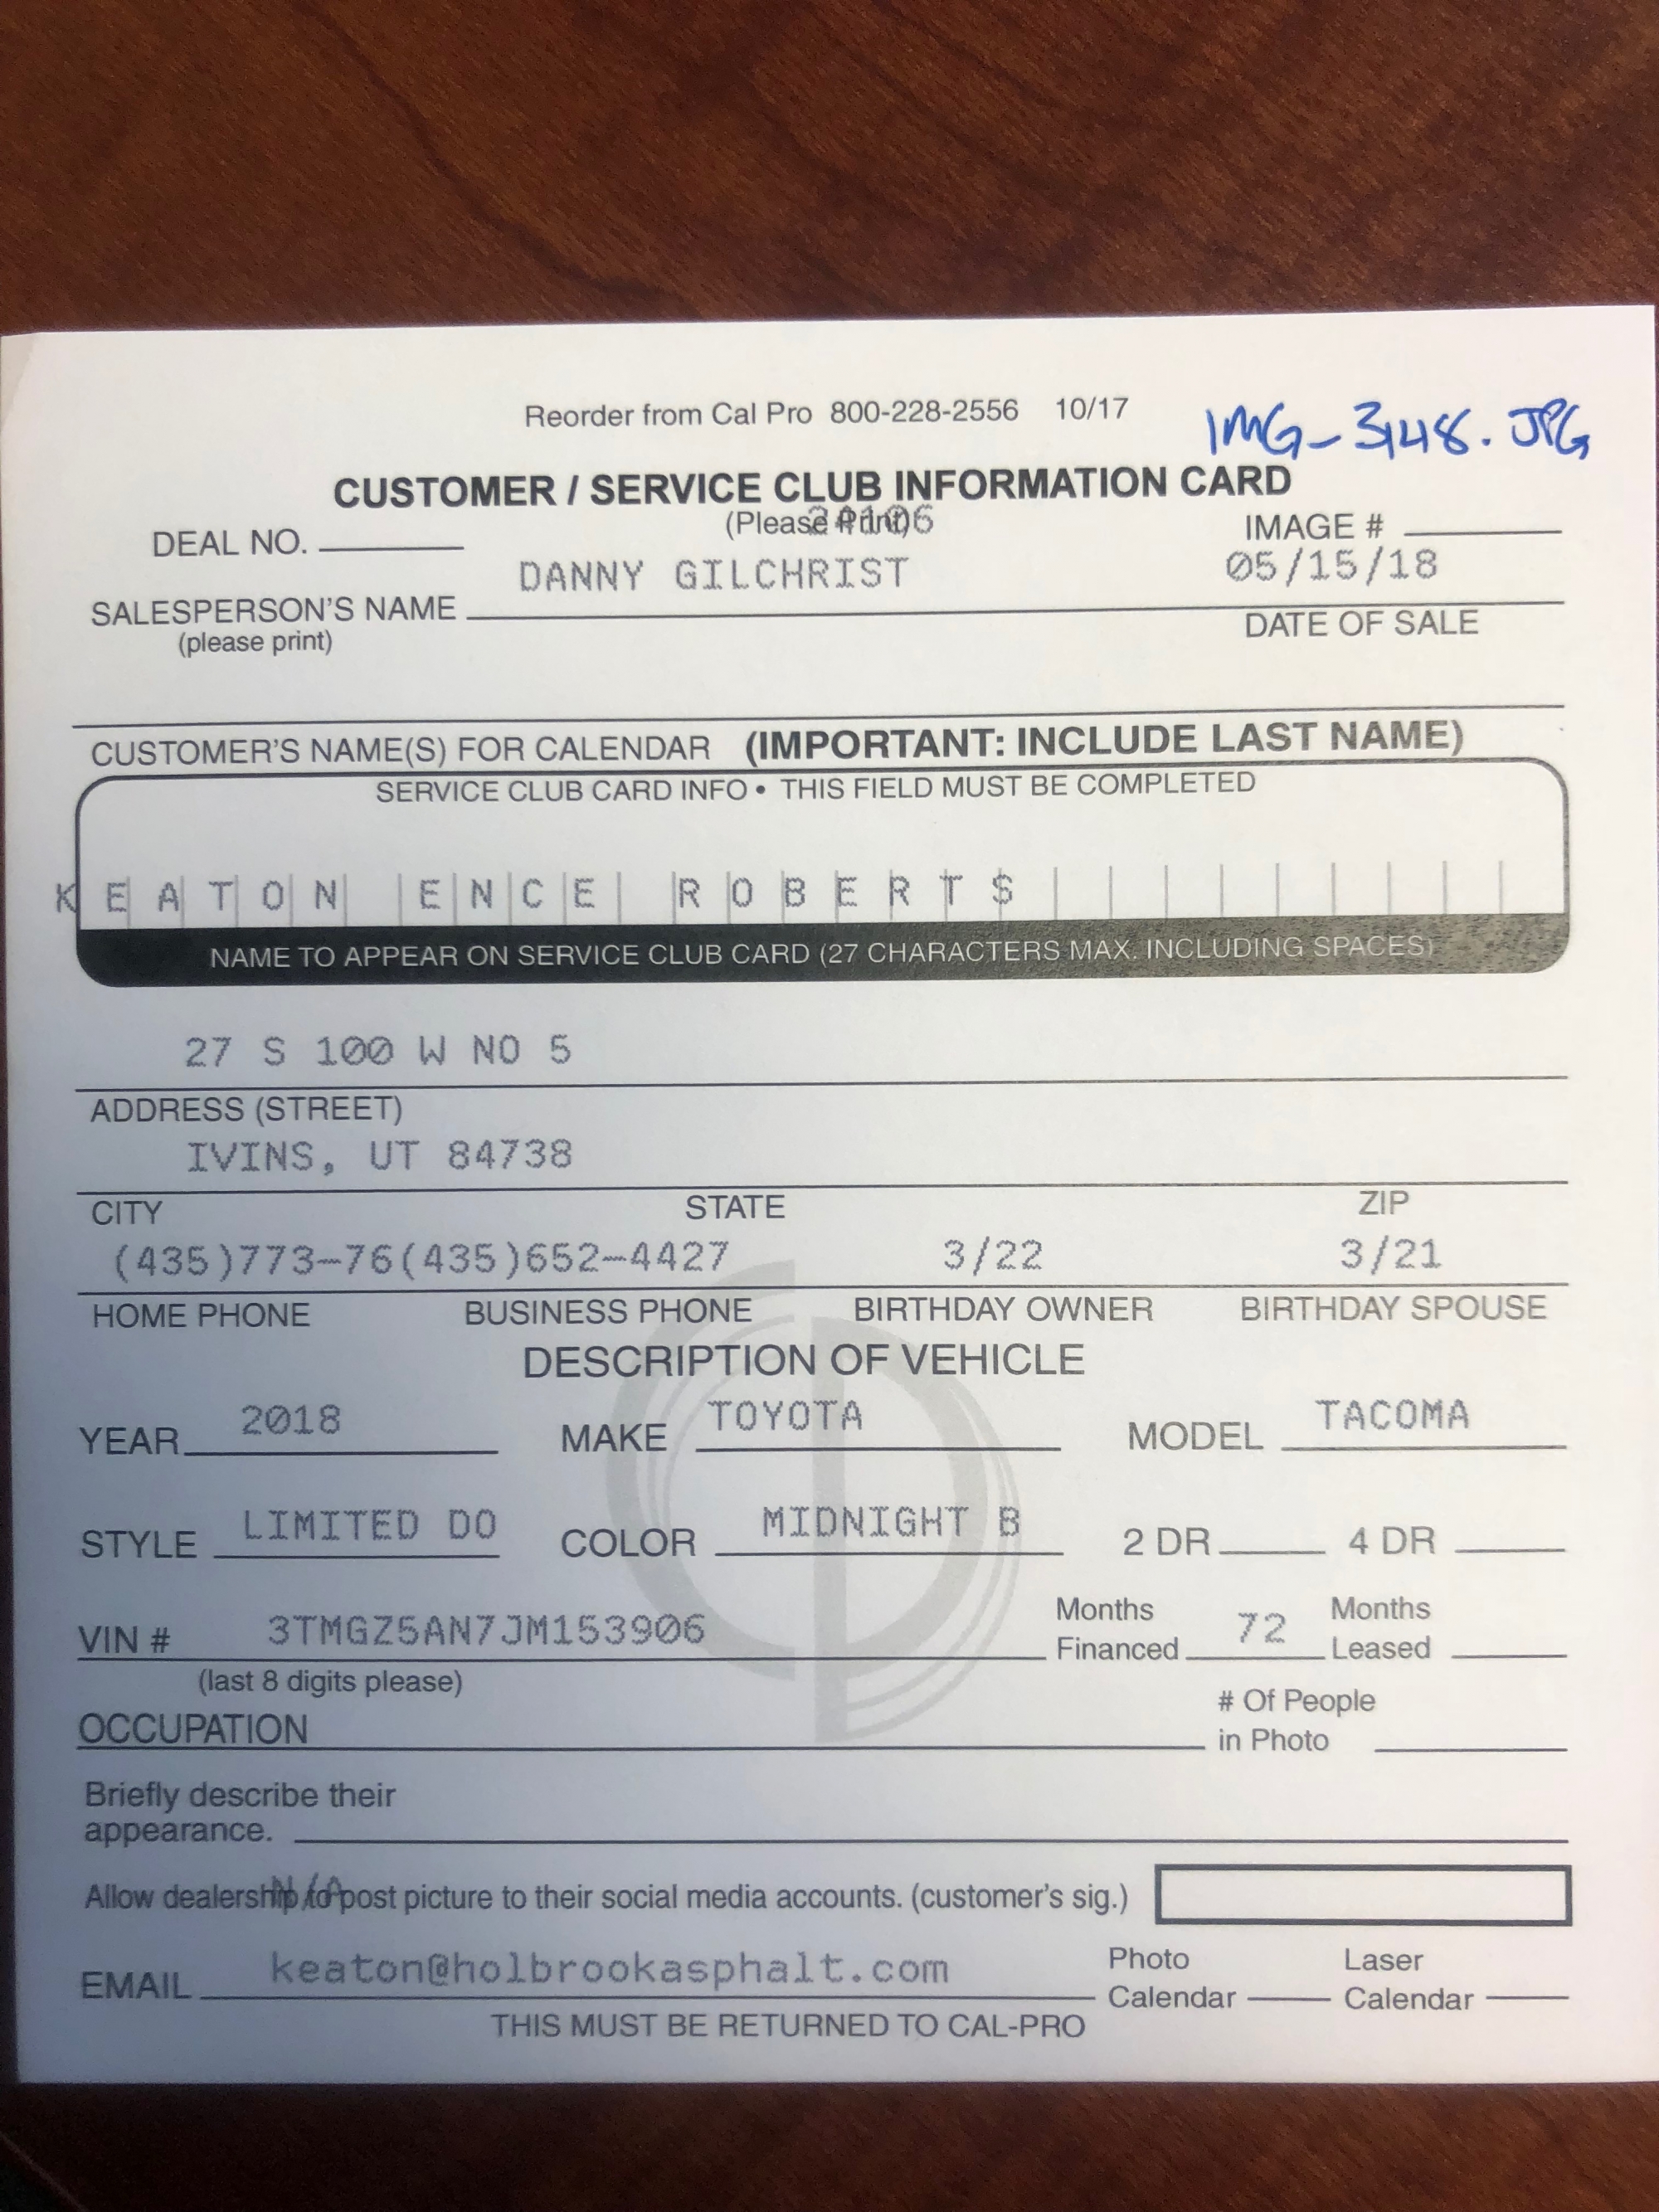 Reorder from Cal Pro 800-228-2556 10/17
IMG-3148.JPG
CUSTOMER / SERVICE CLUB INFORMATION CARD
(Please Print)
DEAL NO. IMAGE #
DANNY GILCHRIST 05/15/18
SALESPERSON'S NAME DATE OF SALE
(please print)
CUSTOMER'S NAME(S) FOR CALENDAR (IMPORTANT: INCLUDE LAST NAME)
SERVICE CLUB CARD INFO • THIS FIELD MUST BE COMPLETED
KEATON ENCE ROBERTS
NAME TO APPEAR ON SERVICE CLUB CARD (27 CHARACTERS MAX. INCLUDING SPACES)
27 S 100 W NO 5
ADDRESS (STREET)
IVINS, UT 84738
CITY STATE ZIP
(435)773-76(435)652-4427 3/22 3/21
HOME PHONE BUSINESS PHONE BIRTHDAY OWNER BIRTHDAY SPOUSE
DESCRIPTION OF VEHICLE
YEAR 2018 MAKE TOYOTA MODEL TACOMA
STYLE LIMITED DO COLOR MIDNIGHT B 2 DR 4 DR
VIN # 3TMGZ5AN7JM153906 Months Financed 72 Months Leased
(last 8 digits please)
OCCUPATION # Of People in Photo
Briefly describe their
appearance.
N/A
Allow dealership to post picture to their social media accounts. (customer's sig.)
EMAIL keaton@holbrookasphalt.com Photo Calendar Laser Calendar
THIS MUST BE RETURNED TO CAL-PRO